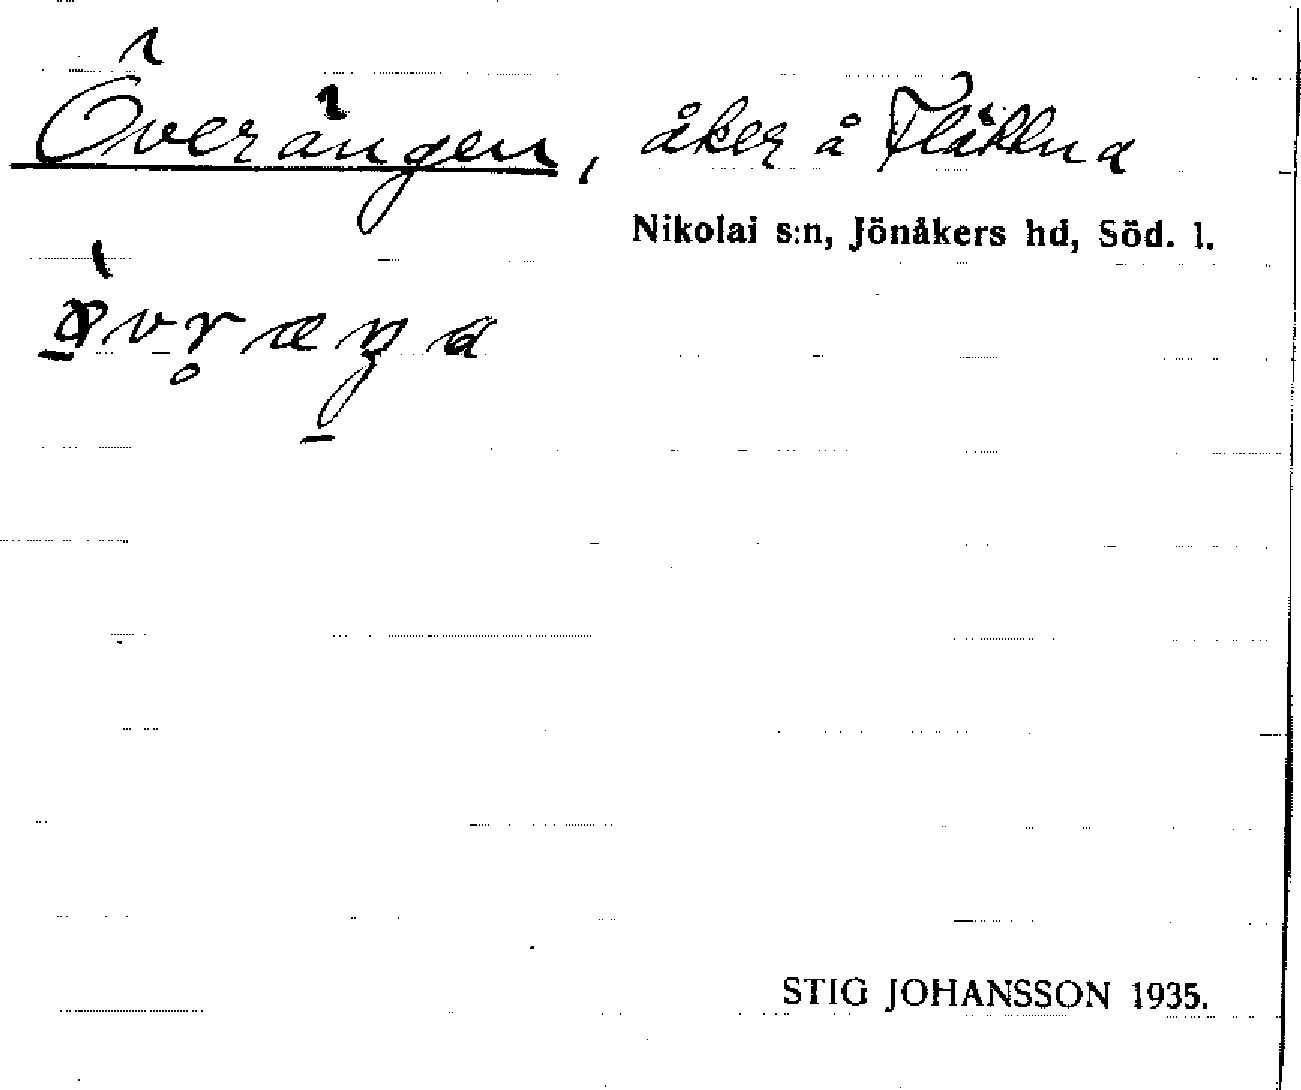 Överängen, åker å Fläkkna
Nikolai s:n, Jönåkers hd, Söd. l.
STIG JOHANSSON 1935.